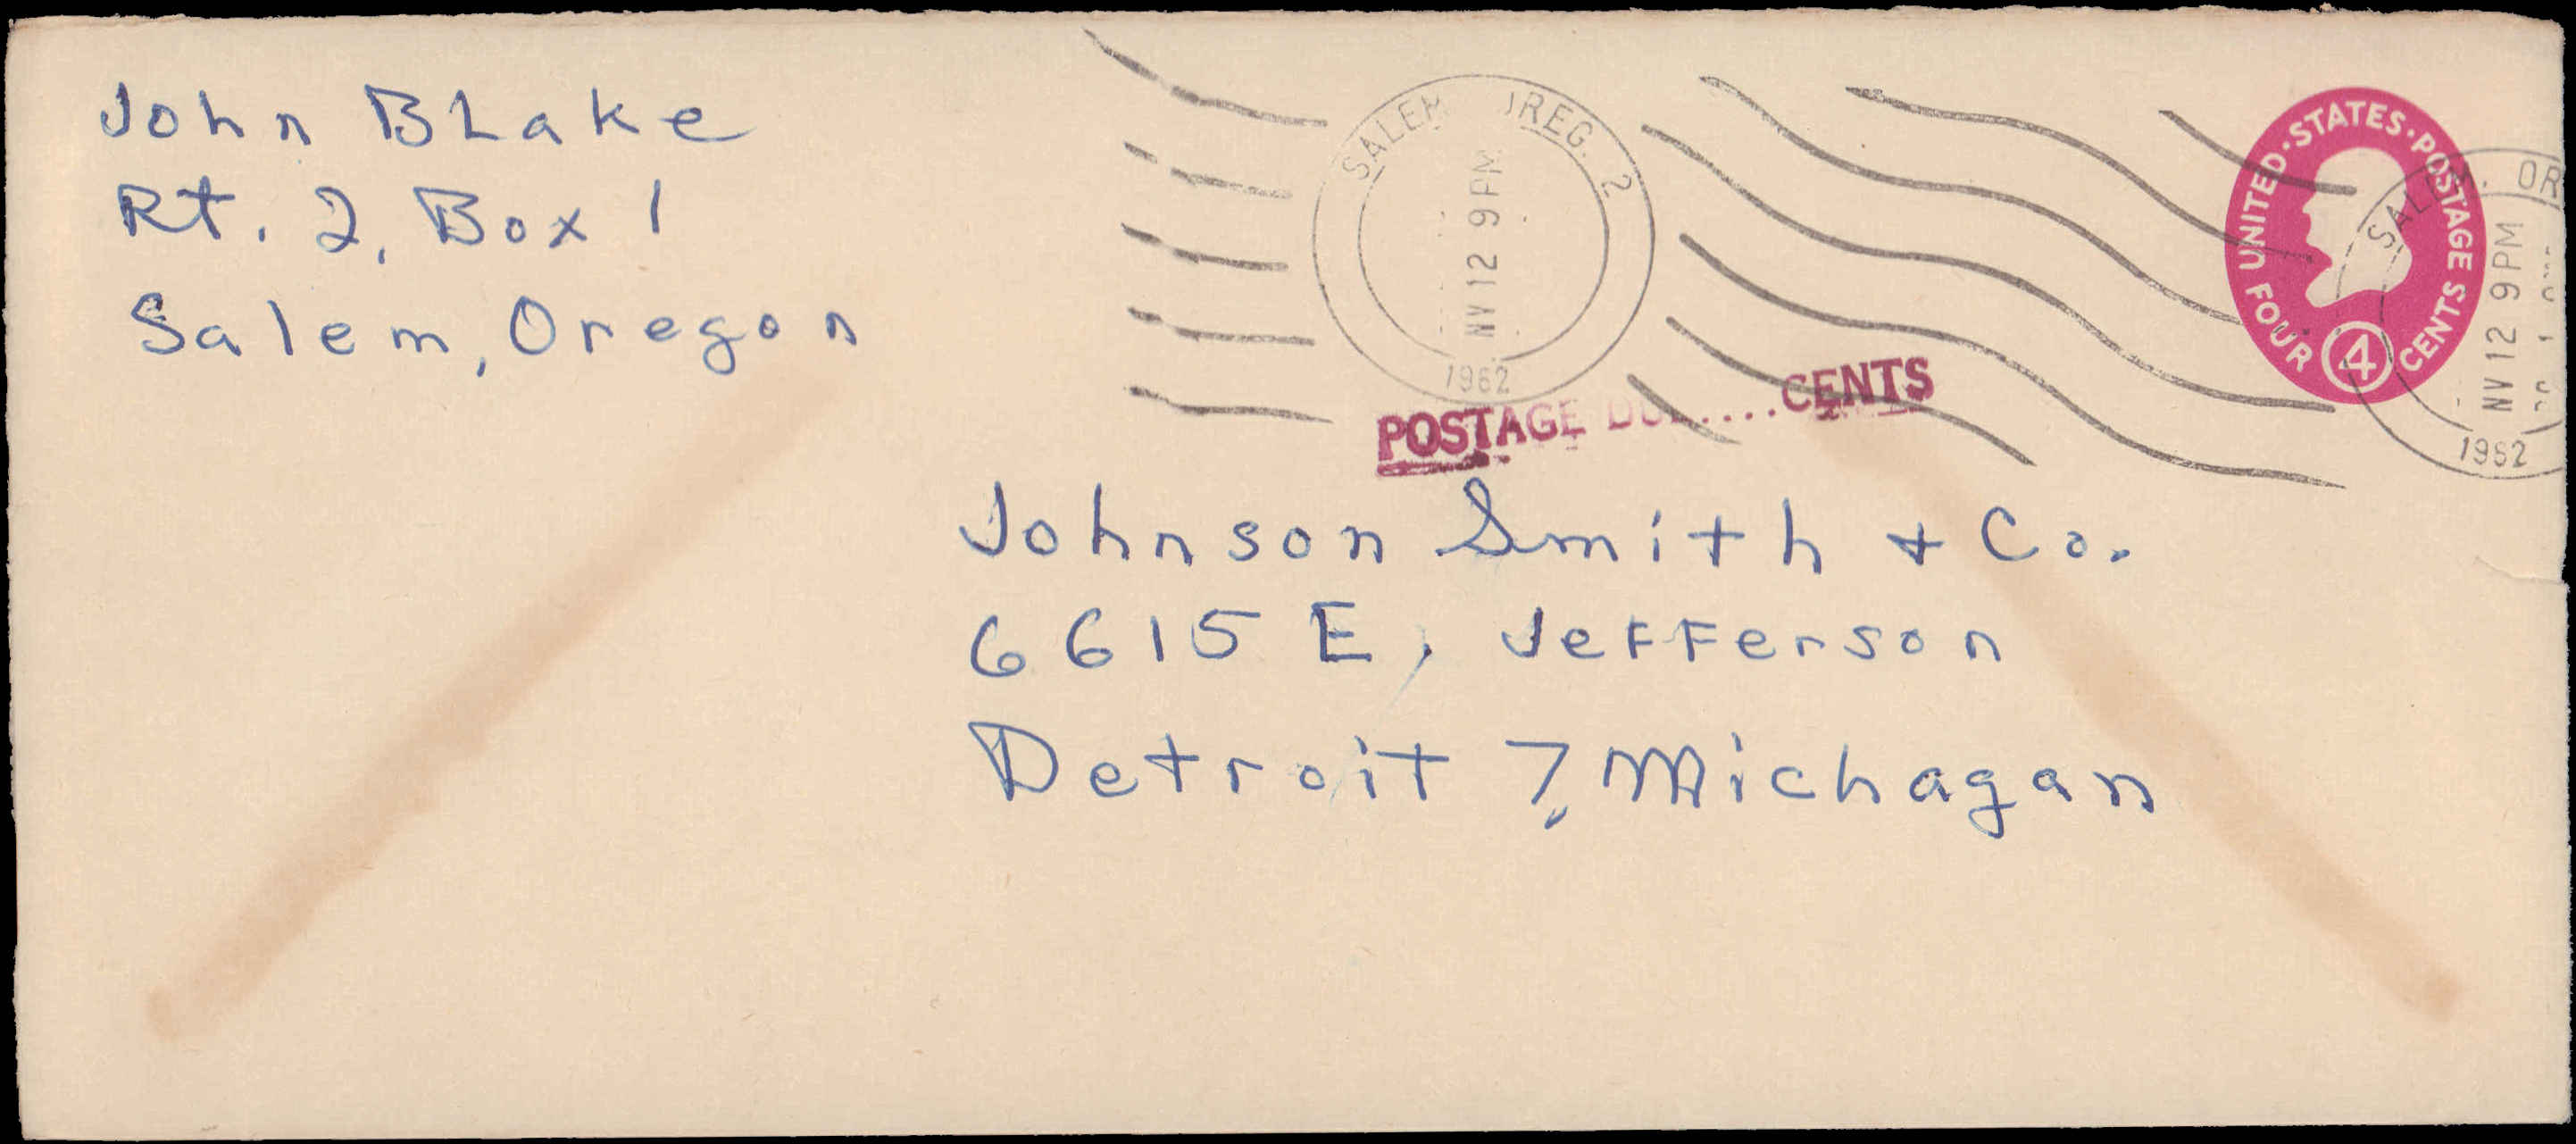 John Blake
Rt. 2, Box 1
Salem, Oregon
SALEM OREG. 2
NV 12 9 PM
1962
UNITED · STATES · POSTAGE
FOUR 4 CENTS
SALEM. OR
NV 12 9 PM
1962
POSTAGE DUE....CENTS
Johnson Smith + Co.
6615 E. Jefferson
Detroit 7, Michagan